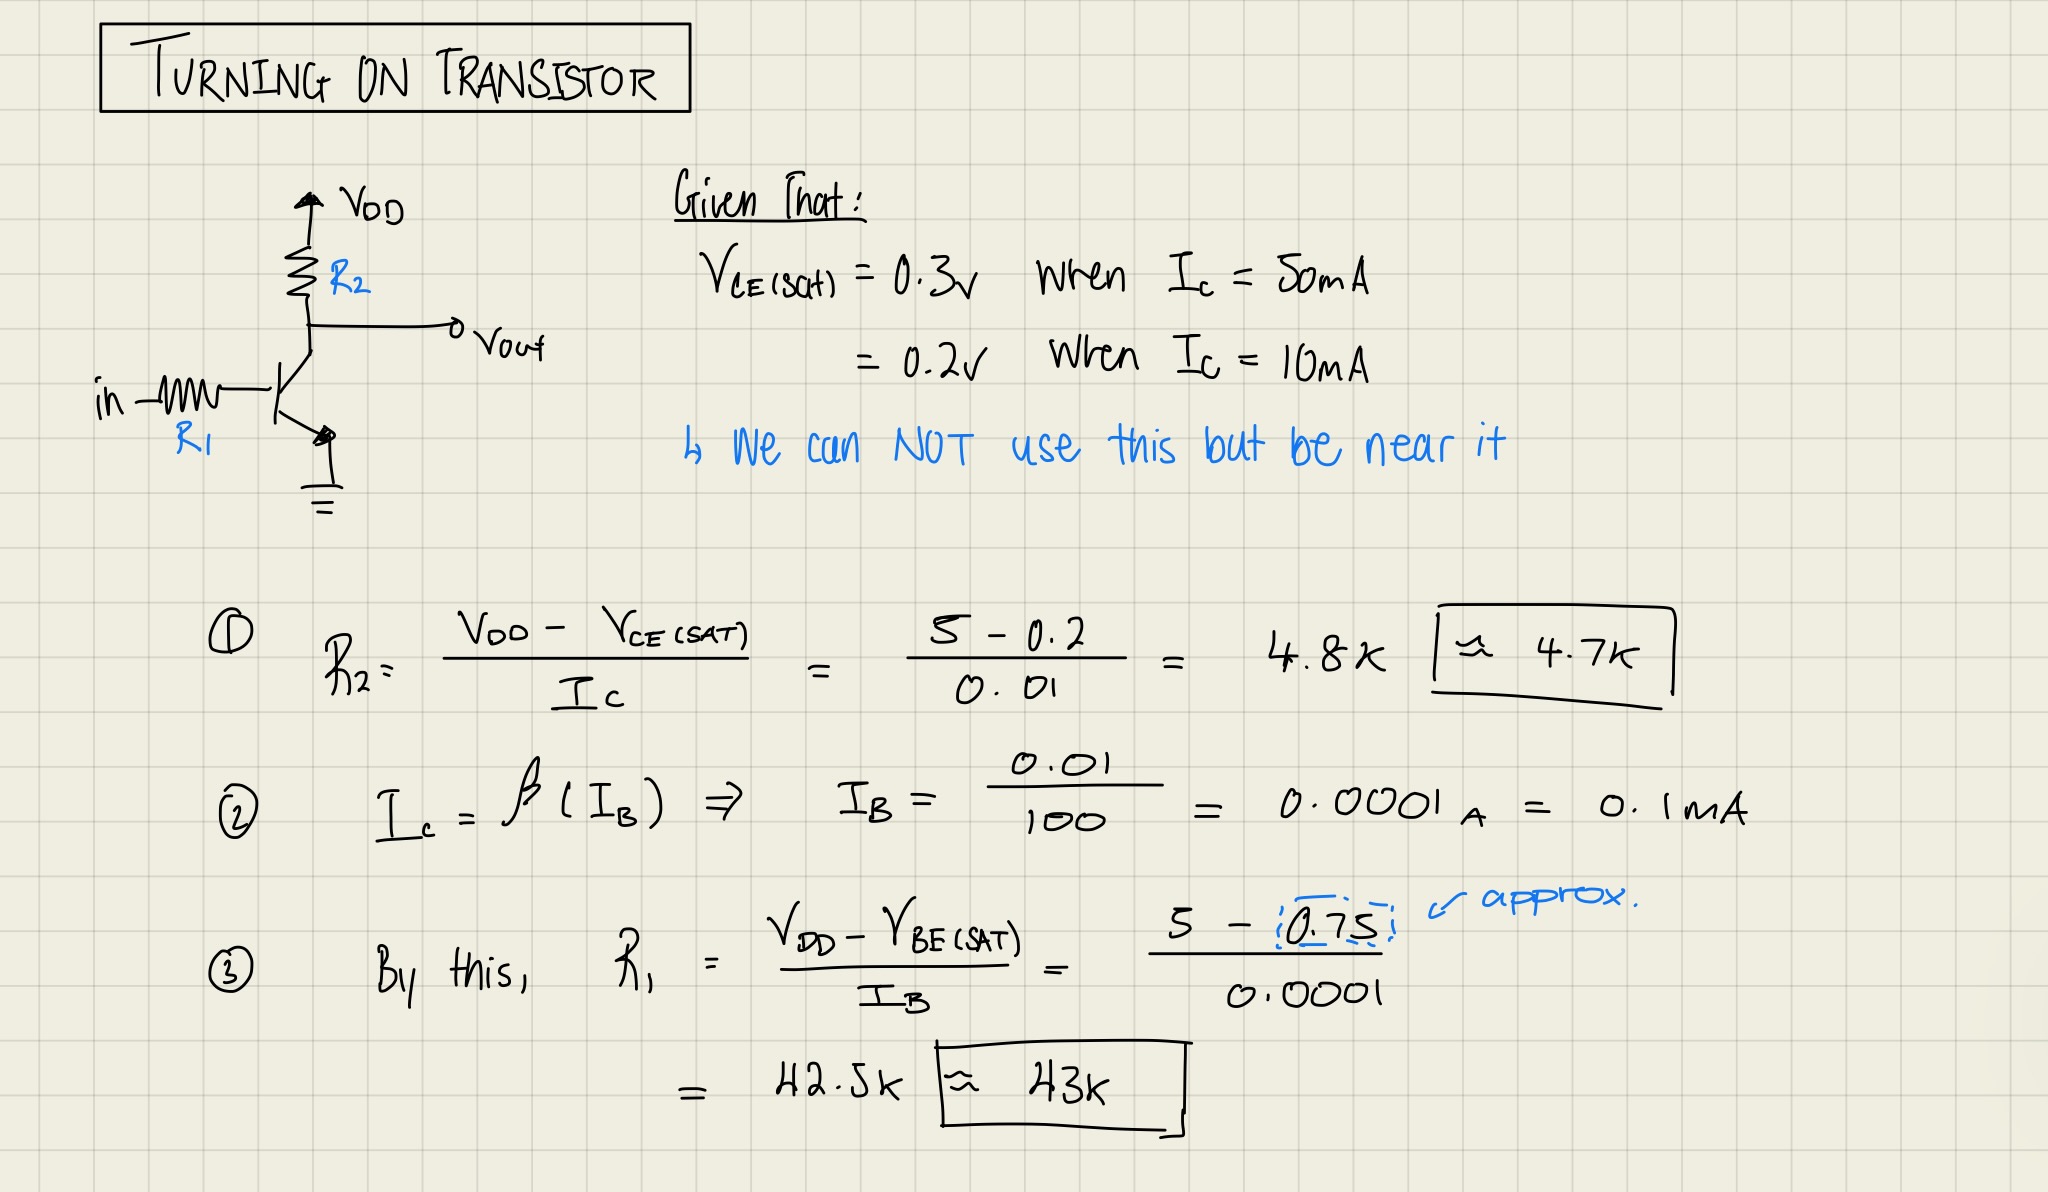 TURNING ON TRANSISTOR
VDD
R2
Vout
in
R1
Given That:
VCE(sat) = 0.3V when Ic = 50mA
= 0.2V when Ic = 10mA
↳ We can NOT use this but be near it
① R2 = (VDD - VCE(SAT)) / Ic = (5 - 0.2) / 0.01 = 4.8K ≈ 4.7K
② Ic = β(IB) ⇒ IB = 0.01 / 100 = 0.0001A = 0.1mA
③ By this, R1 = (VDD - VBE(SAT)) / IB = (5 - 0.75) / 0.0001 ↙ approx.
= 42.5K ≈ 43K